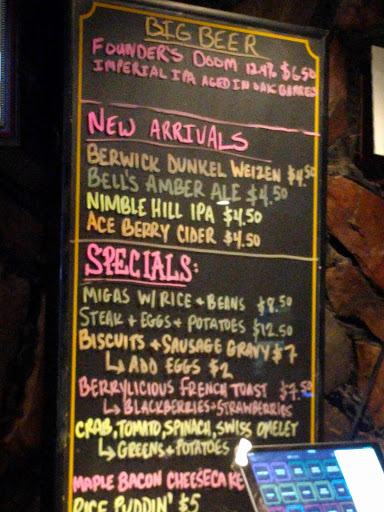 BIG BEER
FOUNDER'S DOOM 12.4% $6.50
IMPERIAL IPA AGED IN OAK BARRELS
NEW ARRIVALS
BERWICK DUNKEL WEIZEN $4.50
BELL'S AMBER ALE $4.50
NIMBLE HILL IPA $4.50
ACE BERRY CIDER $4.50
SPECIALS:
MIGAS W/ RICE + BEANS $8.50
STEAK + EGGS + POTATOES $12.50
BISCUITS + SAUSAGE GRAVY $7
↳ ADD EGGS $2
BERRYLICIOUS FRENCH TOAST $7.50
↳ BLACKBERRIES + STRAWBERRIES
CRAB, TOMATO, SPINACH, SWISS OMELET
↳ GREENS + POTATOES
MAPLE BACON CHEESECAKE
RICE PUDDIN' $5